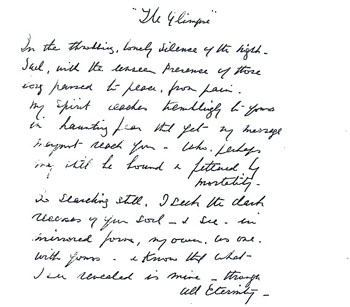 "The Glimpse"
In the throbbing, lonely silence of the night -
Sad, with the unseen Presence of those
long passed to peace, from pain.
My Spirit reaches tremblingly to yours
in haunting fear that yet - my message
may not reach you - Who, perhaps
may still be bound & fettered by
mortality -
So searching still, I seek the dark
recesses of your soul - & see - in
mirrored form, my own, as one.
with yours - & know that what -
I see revealed is mine - through
all Eternity -